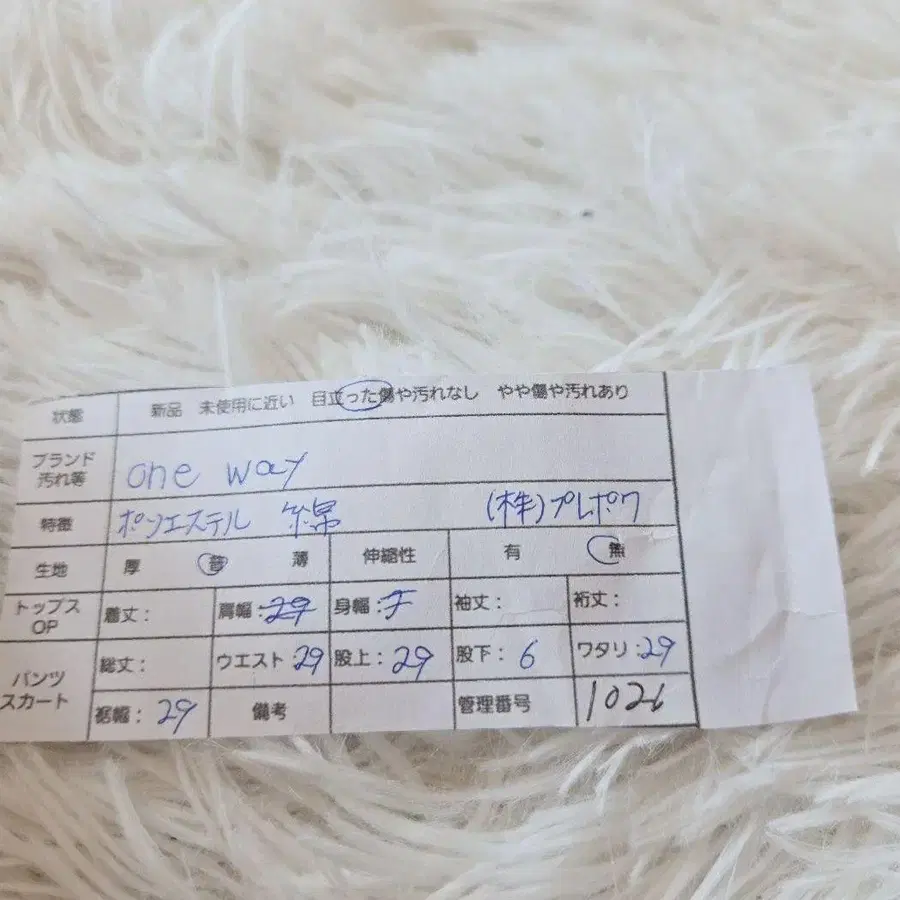 状態 新品 未使用に近い 目立った傷や汚れなし やや傷や汚れあり
ブランド
汚れ等 one way
特徴 ポリエステル 綿 (株)プレポワ
生地 厚 普 薄 伸縮性 有 無
トップス
OP 着丈: 肩幅: 29 身幅: 袖丈: 裄丈:
パンツ
スカート 総丈: ウエスト:29 股上:29 股下:6 ワタリ:29
裾幅:29 備考 管理番号 1021